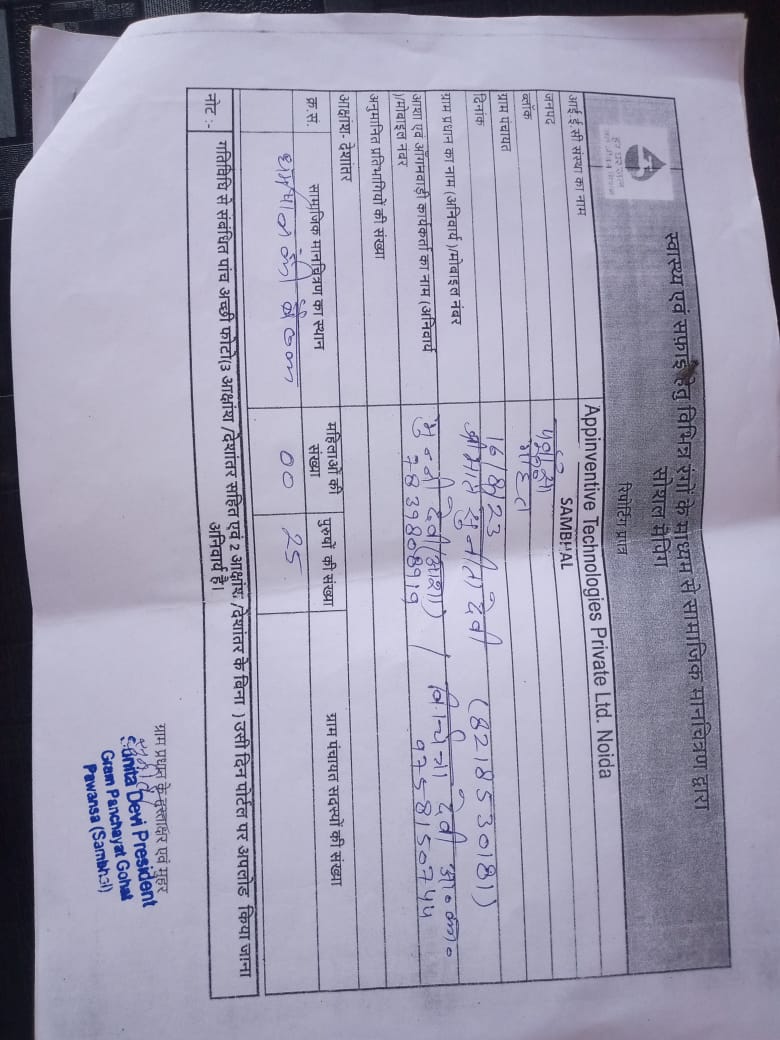 स्वास्थ्य एवं सफाई हेतु विभिन्न रंगों के माध्यम से सामाजिक मानचित्रण द्वारा
सोशल मैपिंग
रिपोर्टिंग प्रपत्र
आई.ई.सी संस्था का नाम Appinventive Technologies Private Ltd. Noida
जनपद SAMBHAL
ब्लॉक पवांसा
ग्राम पंचायत गोहत
दिनांक 16/8/23
ग्राम प्रधान का नाम (अनिवार्य)/मोबाइल नंबर श्रीमति सुनीता देवी (8218530181)
आशा एवं आंगनवाड़ी कार्यकर्ता का नाम (अनिवार्य मुन्नी देवी (आशा) / देवी आ० का०
)/मोबाइल नंबर 7839808919 9758150744
अनुमानित प्रतिभागियों की संख्या
आक्षांश- देशांतर
क्र.सं. सामुजिक मानचित्रण का स्थान महिलाओं की संख्या पुरुषों की संख्या ग्राम पंचायत सदस्यों की संख्या
की बैठक 00 25
नोट :- गतिविधि से संबंधित पांच अच्छी फोटो(3 आक्षांश /देशांतर सहित एवं 2 आक्षांश /देशांतर के बिना ) उसी दिन पोर्टल पर अपलोड किया जाना
अनिवार्य है।
ग्राम प्रधान के हस्ताक्षर एवं मुहर
Sunita Devi President
Gram Panchayat Gohat
Pawansa (Sambhal)